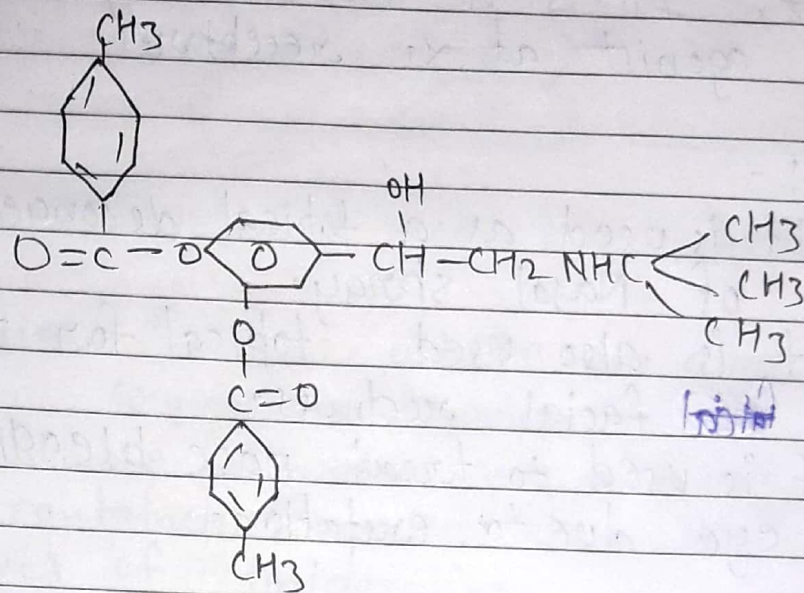 CH3
OH
O=C-O O -CH-CH2 NHC CH3
CH3
CH3
O
C=O
CH3